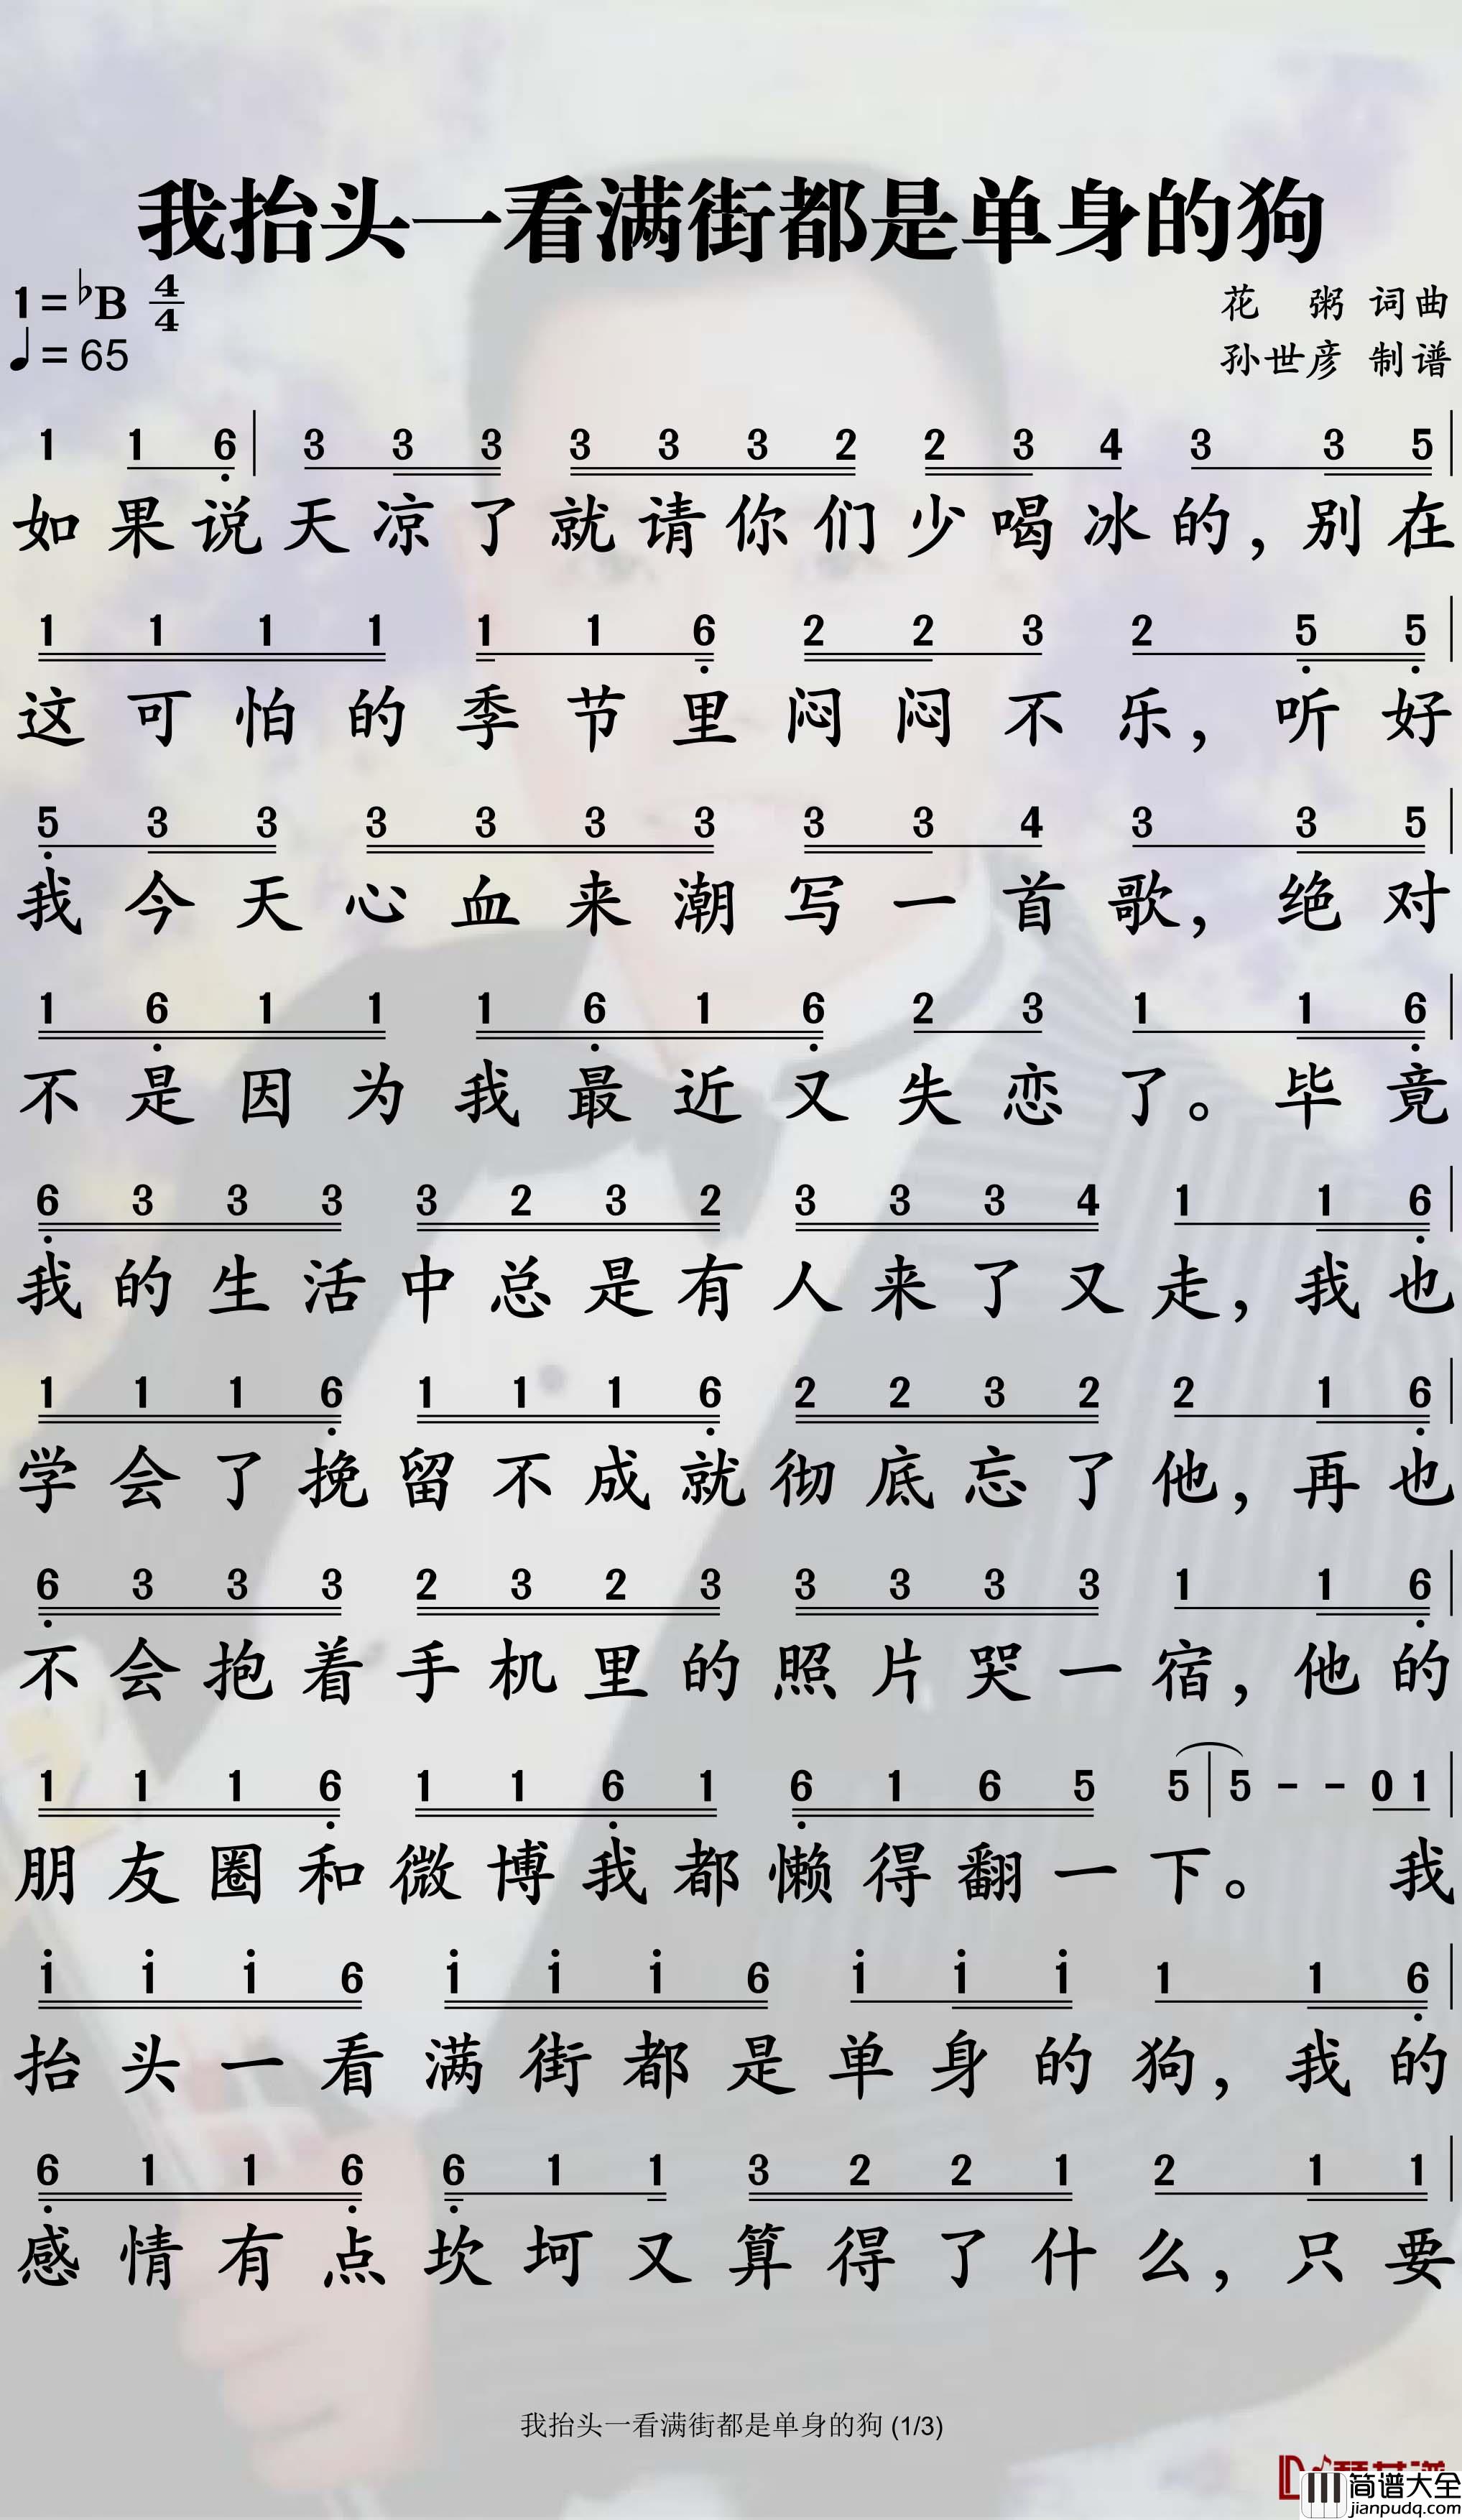 我抬头一看满街都是单身的狗
1=♭B 4/4
花 粥 词曲
♩= 65
孙世彦 制谱
1 1 6̣ | 3 3 3 3 3 3 2 2 3 4 3 3 5 |
如果说天凉了就请你们少喝冰的，别在
1 1 1 1 1 1 6̣ 2 2 3 2 5̣ 5̣ |
这可怕的季节里闷闷不乐，听好
5̣ 3 3 3 3 3 3 3 3 4 3 3 5 |
我今天心血来潮写一首歌，绝对
1 6̣ 1 1 1 6̣ 1 6̣ 2 3 1 1 6̣ |
不是因为我最近又失恋了。毕竟
6̣ 3 3 3 3 2 3 2 3 3 3 4 1 1 6̣ |
我的生活中总是有人来了又走，我也
1 1 1 6̣ 1 1 1 6̣ 2 2 3 2 2 1 6̣ |
学会了挽留不成就彻底忘了他，再也
6̣ 3 3 3 2 3 2 3 3 3 3 3 1 1 6̣ |
不会抱着手机里的照片哭一宿，他的
1 1 1 6̣ 1 1 6̣ 1 6̣ 1 6 5 5 | 5 - - 0 1 |
朋友圈和微博我都懒得翻一下。 我
1̇ 1̇ 1̇ 6 1̇ 1̇ 1̇ 6 1̇ 1̇ 1̇ 1 1 6̣ |
抬头一看满街都是单身的狗，我的
6̣ 1 1 6̣ 6̣ 1 1 3 2 2 1 2 1 1 |
感情有点坎坷又算得了什么，只要
我抬头一看满街都是单身的狗 (1/3)
简谱大全
jianpudq.com